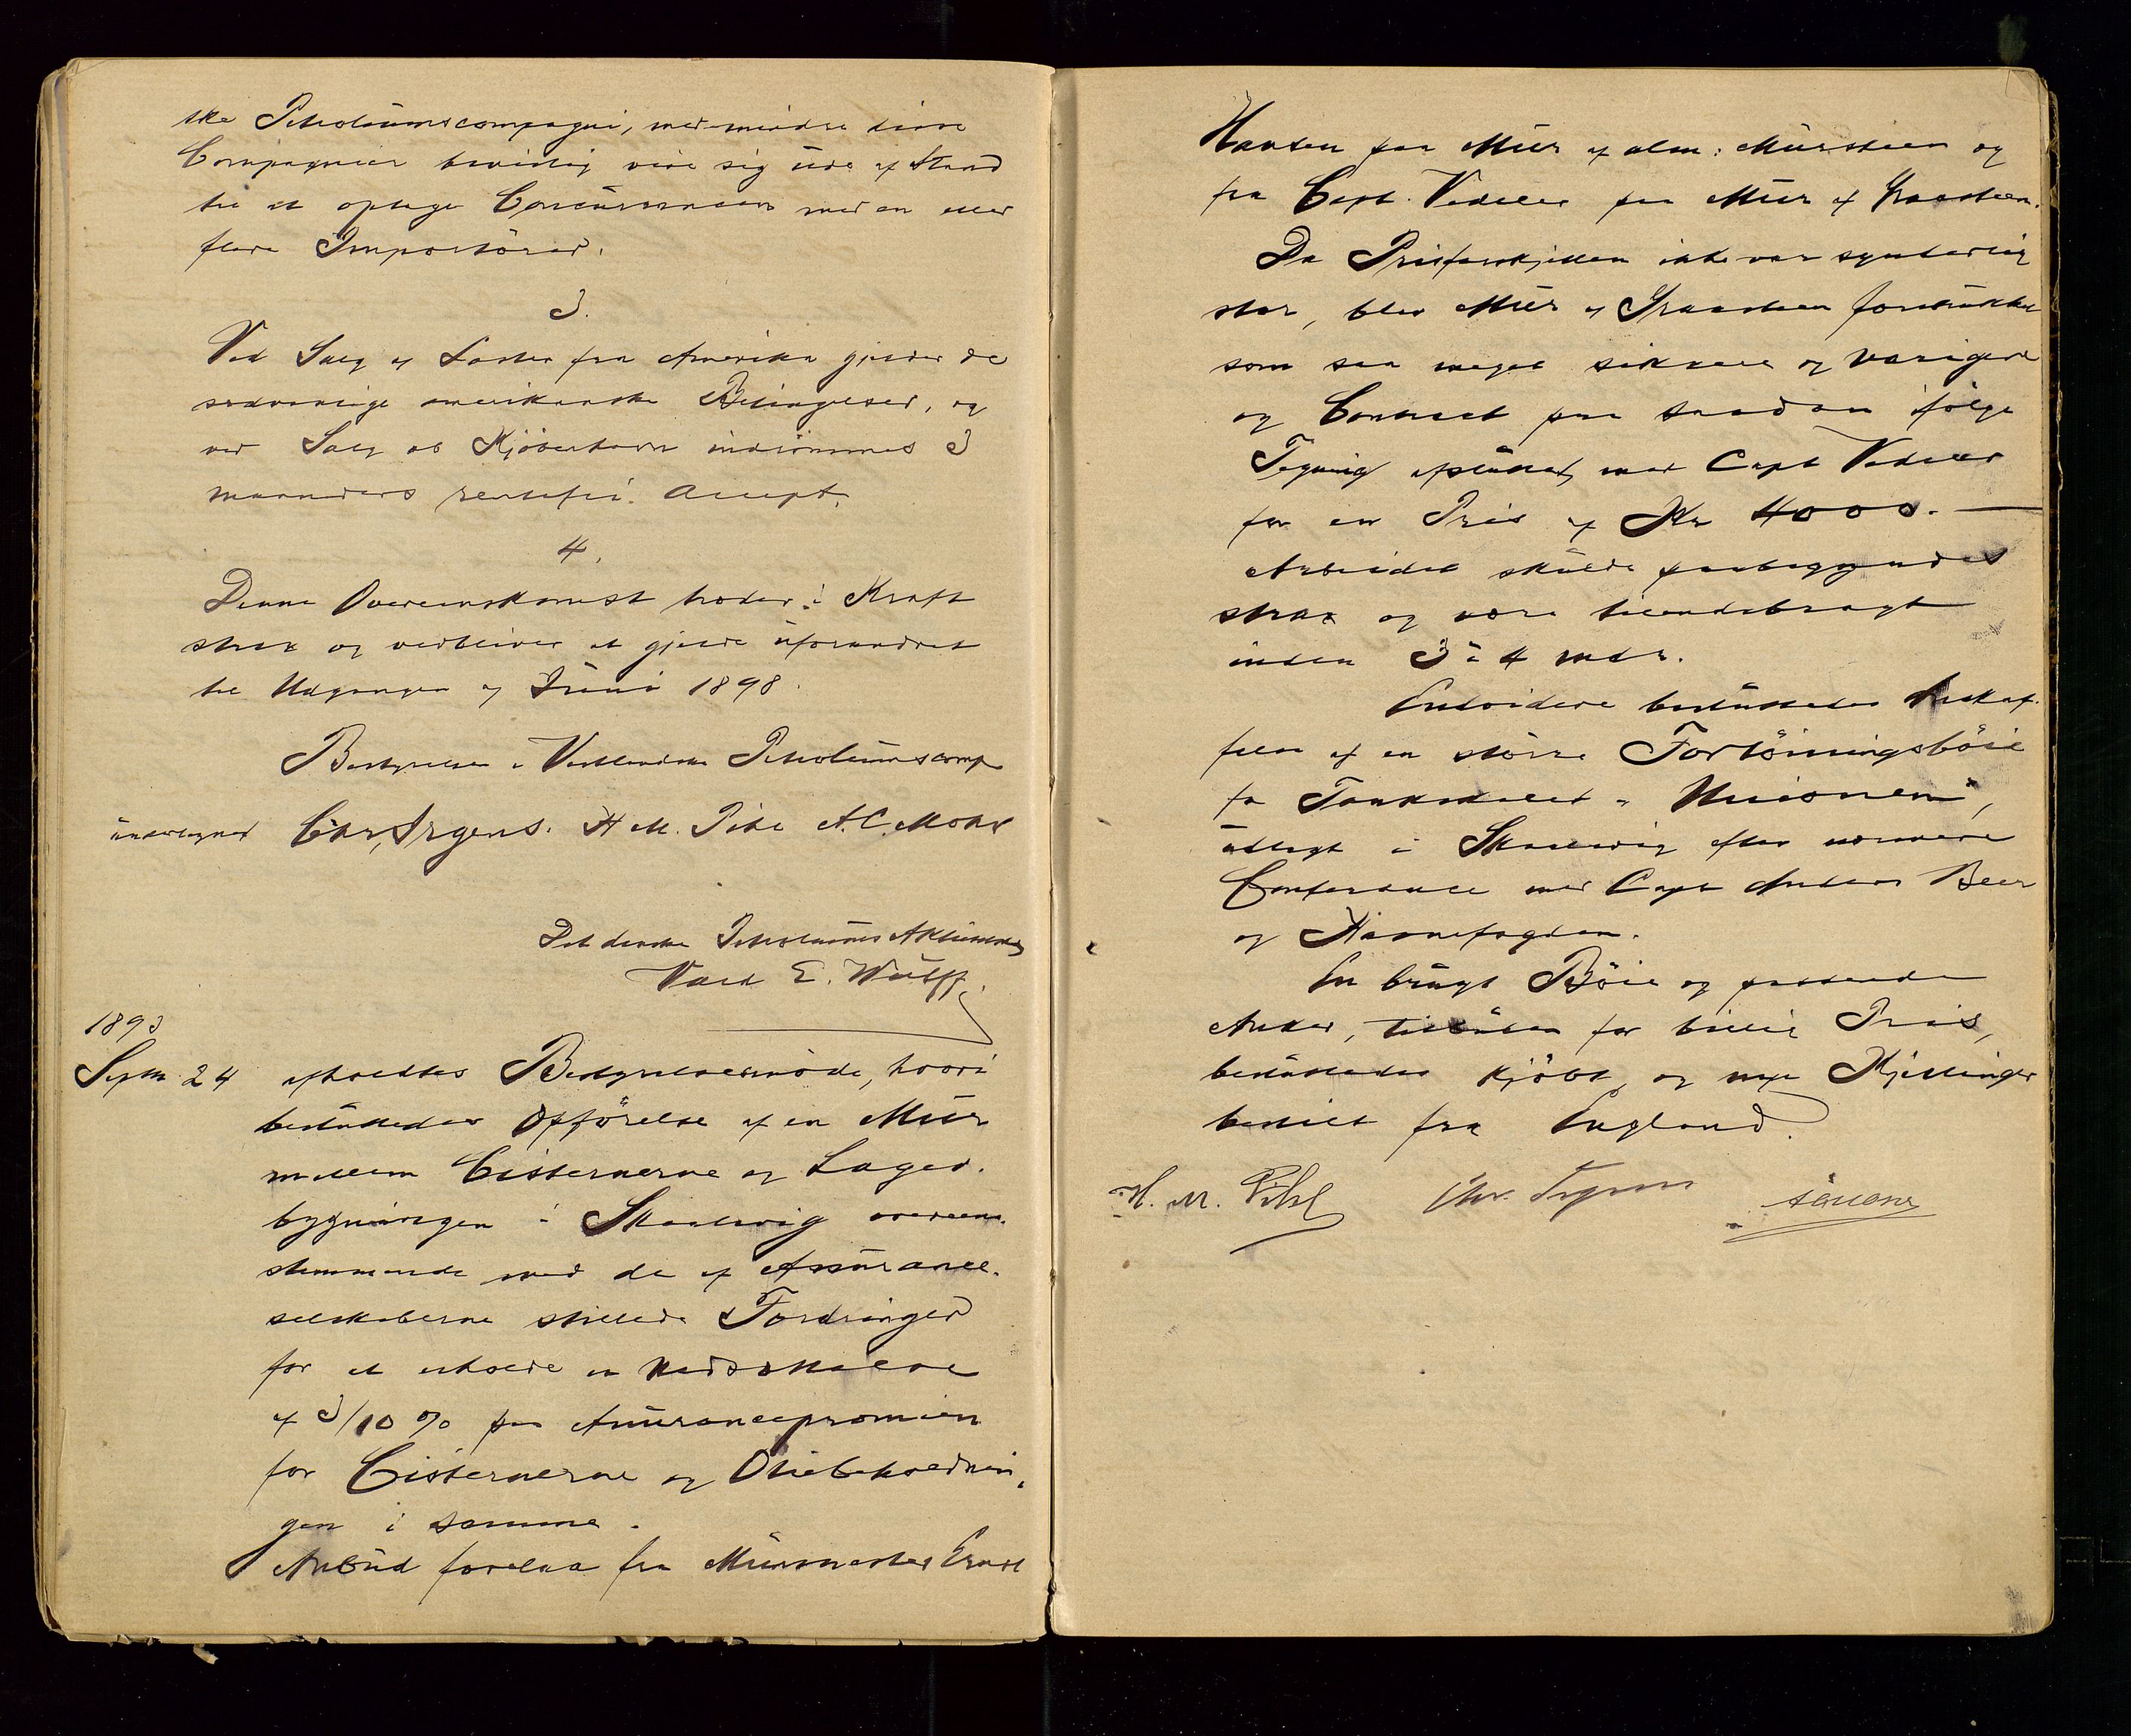 ske Petroleumscompagni, medmindre disse
Compagnier bevislig vise sig ude af Stand
til at optage Concurrencen med en eller
flere Importører.
3.
Ved Salg af Laster fra Amerika gjelder de
sedvanlige amerikanske Betingelser, og
ved Salg ab Kjøbenhavn indrømmes 3
maaneders rentefri Accept.
4.
Denne Overenskomst træder i Kraft
strax og vedbliver at gjelde uforandret
til Udgangen af Juni 1898.
Bestyrelsen i Vestlandske Petroleumscomp
undertegnet Chr. Irgens. H M. Pihl A.C. Mohr
Det danske Petroleums Aktieselskab
Vald E. Wulff
1893
Septbr 24 afholdtes Bestyrelsesmøde, hvori
besluttedes Opførelse af en Mur
mellem Cisternerne og Lager-
bygningen i Skaalevig overeens-
stemmende med de af Assurance-
selskaberne stillede Fordringer
for at erholde en Nedsættelse
af 3/10 % paa Assurancepræmien
for Cisternerne og Oliebeholdnin-
gen i samme.
Anbud forelaa fra Murmester
Hansen paa Mur af alm: Mursteen og
fra Capt. Vedeler paa Mur af Graasteen.
Da Prisforskjellen ikke var synderlig
stor, blev Mur af Graasteen foretrukket
som saa meget sikkrere og varigere
og Contract paa saadan ifølge
Tegning afsluttet med Capt Vedeler
for en Pris af Kr 4000.—
Arbeidet skulde paabegyndes
strax og være tilendebragt
inden 3 à 4 mdr.
Endvidere besluttedes Anskaf-
felse af en større Fortøiningsbøie
for Tankskibet "Unionen",
udlagt i Skaalevig efter nærmere
Conference med Capt Anders Beer
og Havnefogden.
En brugt Bøie og passende
Anker, tilbuden for billig Pris,
besluttedes kjøbt, og nye Kjettinger
bestilt fra England.
H. M. Pihl Chr. Irgens